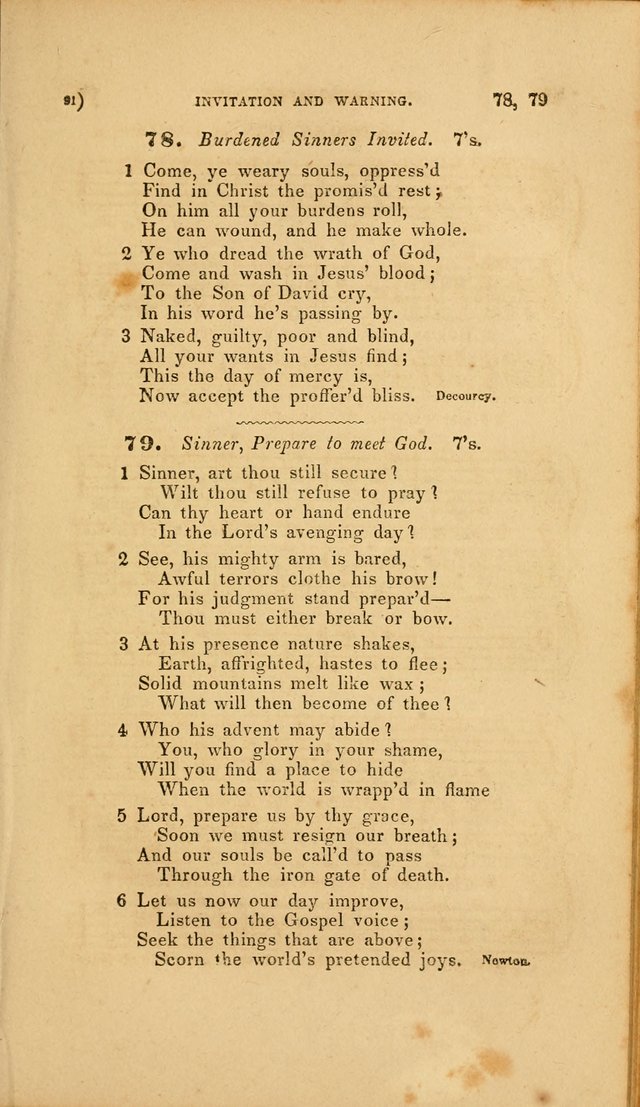 91) INVITATION AND WARNING. 78, 79
78. Burdened Sinners Invited. 7's.
1 Come, ye weary souls, oppress'd
Find in Christ the promis'd rest;
On him all your burdens roll,
He can wound, and he make whole.
2 Ye who dread the wrath of God,
Come and wash in Jesus' blood;
To the Son of David cry,
In his word he's passing by.
3 Naked, guilty, poor and blind,
All your wants in Jesus find;
This the day of mercy is,
Now accept the proffer'd bliss. Decourcy.
79. Sinner, Prepare to meet God. 7's.
1 Sinner, art thou still secure?
Wilt thou still refuse to pray?
Can thy heart or hand endure
In the Lord's avenging day?
2 See, his mighty arm is bared,
Awful terrors clothe his brow!
For his judgment stand prepar'd—
Thou must either break or bow.
3 At his presence nature shakes,
Earth, affrighted, hastes to flee;
Solid mountains melt like wax;
What will then become of thee?
4 Who his advent may abide?
You, who glory in your shame,
Will you find a place to hide
When the world is wrapp'd in flame
5 Lord, prepare us by thy grace,
Soon we must resign our breath;
And our souls be call'd to pass
Through the iron gate of death.
6 Let us now our day improve,
Listen to the Gospel voice;
Seek the things that are above;
Scorn the world's pretended joys. Newton.